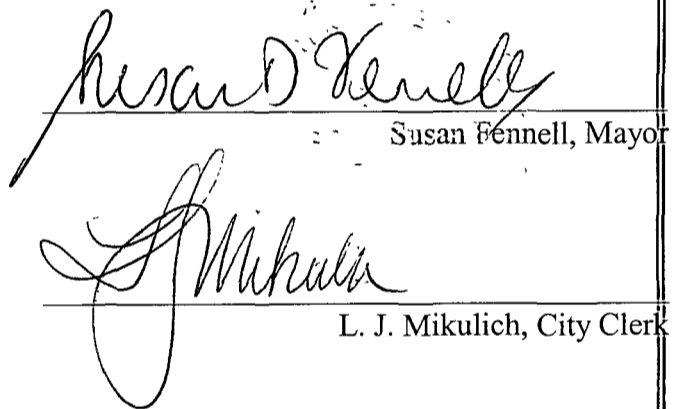 Susan D Fennell
Susan Fennell, Mayor
L. J. Mikulich, City Clerk